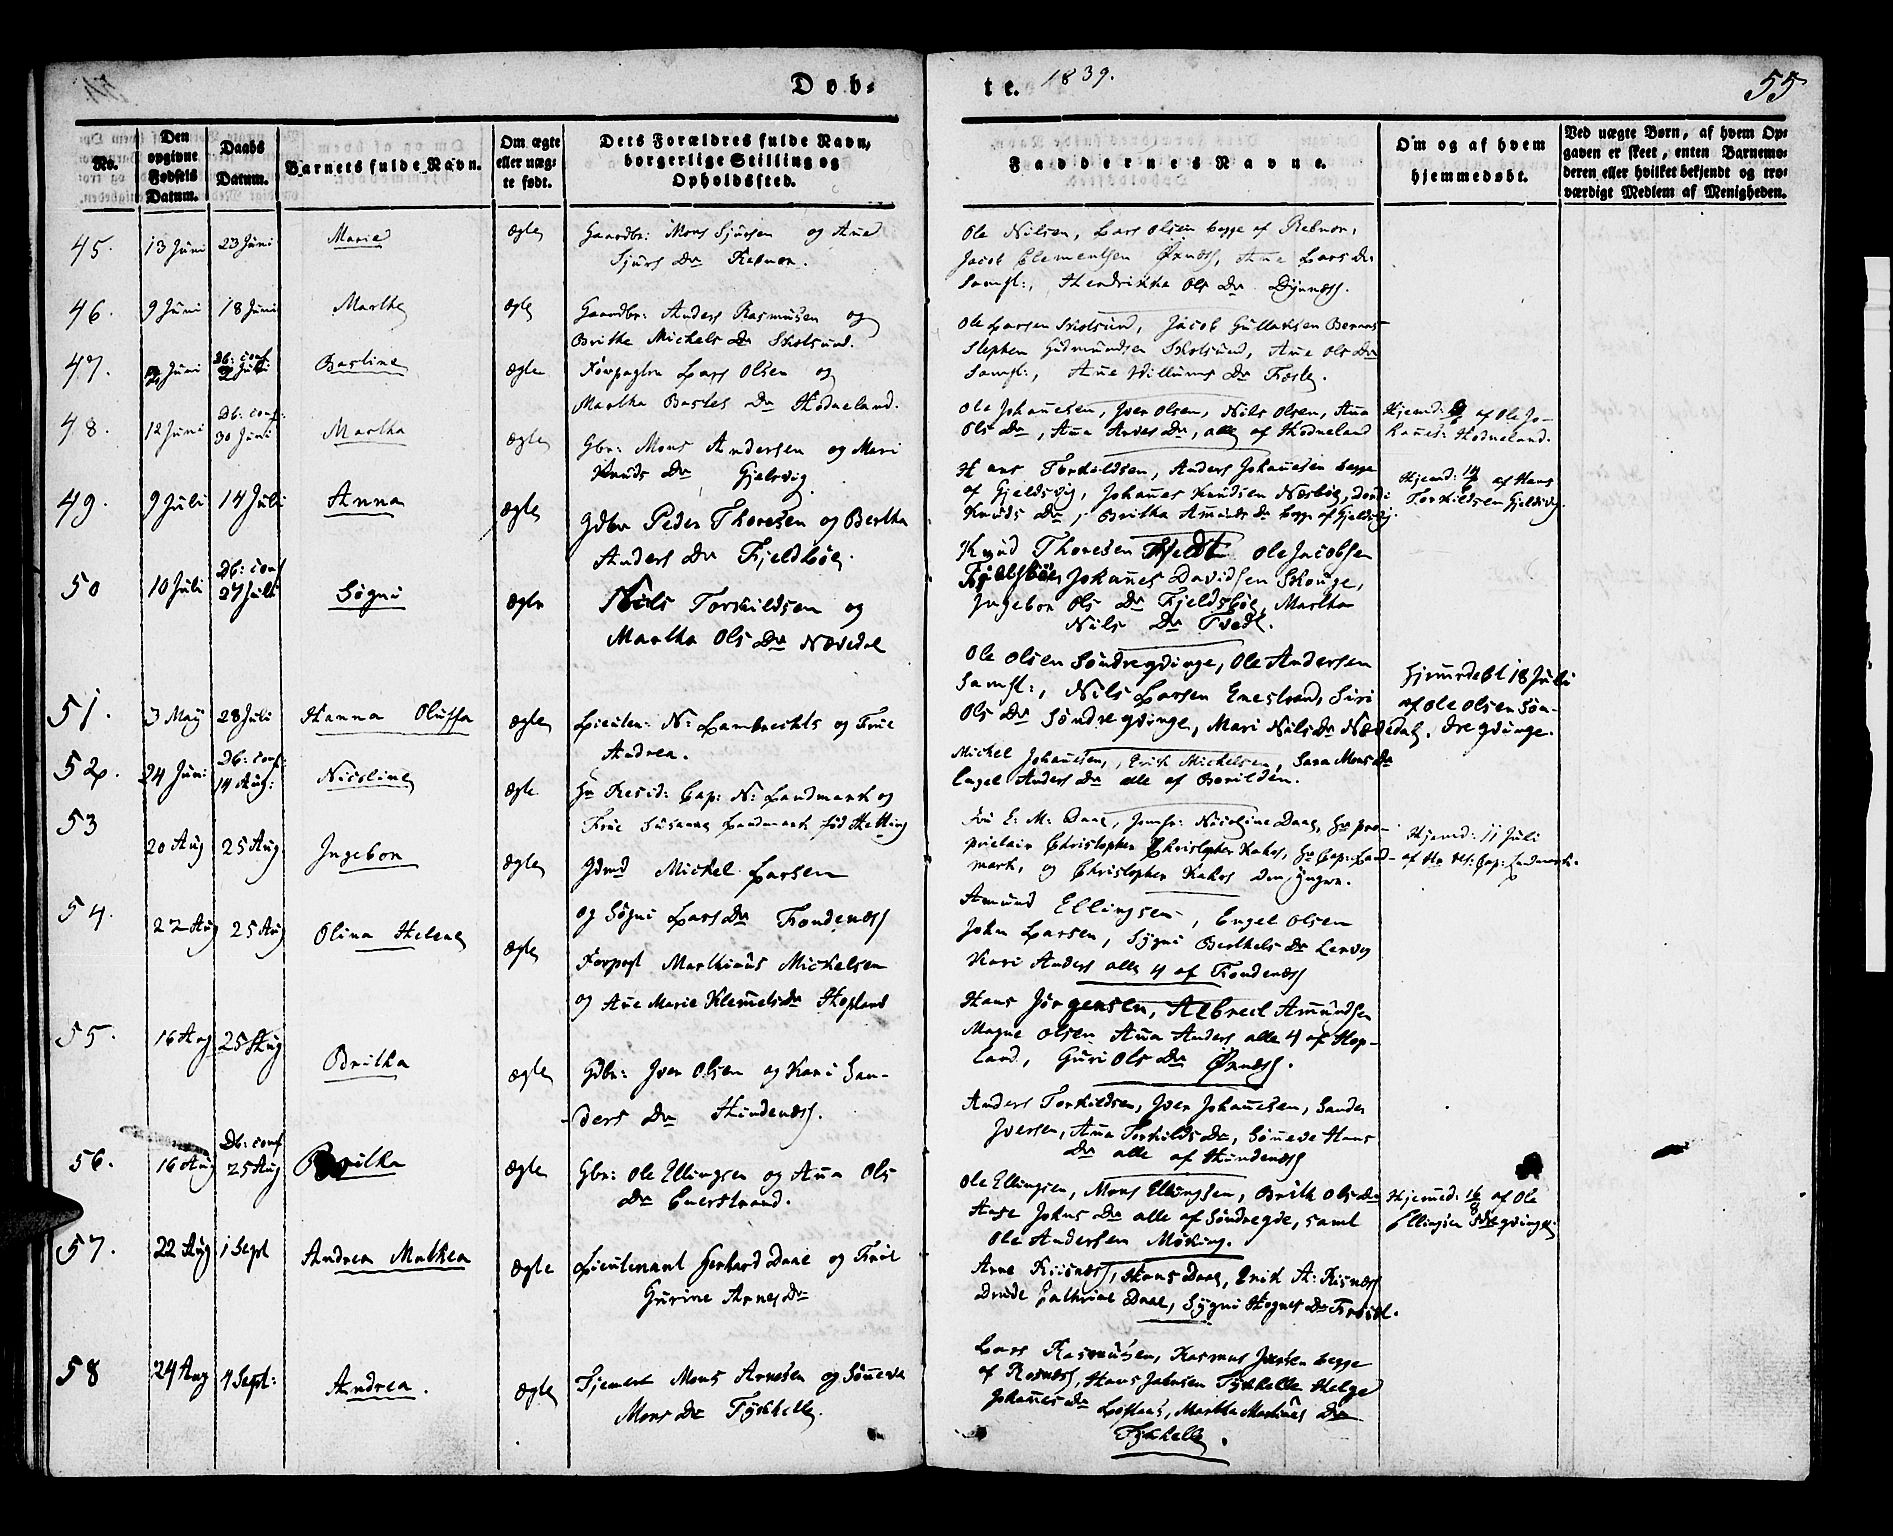 Døb-
te. 1839.
55
No.
Den opgivne Fødsels Datum.
Daabs Datum.
Barnets fulde Navn.
Om ægte eller uægte født.
Dets Forældres fulde Navn, borgerlige Stilling og Opholdssted.
Faddernes Navne.
Om og af hvem hjemmedøbt.
Ved uægte Børn, af hvem Opgaven er skeet, enten Barnemoderen eller hvilket bekjendt og troværdigt Medlem af Menigheden.
45. 13 Juni 23 Juni Marie ægte Gaardbr: Mons Sjursen og Ane
Sjurs Dr
Ole Nilsen, Lars Olsen begge af
Jacob Clementsen Ørnæss, Ane Lars Dr
Samst:, Hendrikka Ols Dr
46. 9 Juni 18 Juni Marthe ægte Gaardbr: Anders Rasmusen og
Brithe Michels Dr Skolsund.
Ole Larsen Skolsund, Jacob Gullaksen
Stephen Gudmundsen Skolsund, Ane Ols Dr
Samst:, Ane Willums Dr
47. Juni Db: conf Juli Bastine ægte Lars Olsen og
Martha Bastes Dr Hodneland.
Ole Johannesen, Iver Olsen, Nils Olsen, Anna
Ols Dr, Anna Arnes Dr, alle af Hodneland
Hjemd: af Ole Jo-
hanes: Hodneland.
48. 12 Juni Db: conf: 30 Juni Martha ægte Gbr: Mons Andersen og Mari
Knuds Dr Gjelsvig.
Hans Torkildsen, Anders Johanesen begge
af Gjeldsvig, Johannes Knudsen Næsbøe,
Knuds Dr, Britha Amunds Dr begge af Gjeldsvig.
Hjemd: 14/6 af Hans
Torkildsen Gjeldsvig
49. 9 Juli 14 Juli Anna ægte Gdbr Peder Thoresen og Bertha
Anders Dr Fjeldsbøe.
Knud Thoresen Ole Jacobsen
Fjeldsbøe, Johannes Davidsen Skouge,
Ingebor Ols Dr Fjeldsbøe, Martha
Nils Dr Tvedt.
50 10 Juli Db: conf 27 Juli Søgni ægte Nils Torkildsen og
Martha Ols Dr Nævedal
Ole Olsen Søndregvinge, Ole Andersen
Samst:, Nils Larsen Enestrand, Siri
Ols Dr Søndregvinge, Mari Nils Dr Nævedal.
Hjemdøbt 18 Juli
af Ole Olsen Søn-
dregvinge.
51. 3 Maij 28 Juli Hanna Oluffa ægte Lieuten: N: Lambrechts og Frue
Andrea.
Michel Johannesen, Erich Michelsen, Sara Mons Dr
Engel Anders Dr alle af Borilden.
52. 24 Juni Db: conf: 14 Aug: Nicoline ægte Hr Resid: Cap: N: Landmark og
Frue Susanna Landmark fød Hetting
Fru E: M: Daae, Jomfr: Nicoline Daae, Hr pro-
prietair Christopher Christopher Kahrs, Hr Cap: Land-
mark, og Christopher Kahrs den yngre.
Hjemd: 11 Juli
af Hr Res: Cap: Landmark.
53 20 Aug 25 Aug Ingebor ægte Gdmd Michel Larsen
og Søgni Lars Dr Fondenæss
Amund Ellingsen, Engel Olsen
John Larsen, Sygni Berthels Dr Lervog
Kari Anders alle 4 af Fondenæss
54. 22 Aug 25 Aug Olina Helene ægte Forpagt Mathias Michelsen
og Ane Marie Klemets Dr Hopland
Hans Jørgensen, Albrect Amundsen
Magne Olsen Anna Anders alle 4 af Hop-
land, Guri Ols Dr Ørnæss.
55. 16 Aug 25 Aug Britha ægte Gdbr: Iver Olsen og Kari San-
ders Dr Hindenæss.
Anders Torkildsen, Iver Johannesen, Sander
Iversen, Anna Torkilds Dr, Sønneve Hans
Dr alle af Hindenæss
56. 16 Aug Db: conf 25 Aug Britha ægte Gbr: Ole Ellingsen og Anna Ols
Dr Enerstrand.
Ole Ellingsen, Mons Ellingsen, Brith Ols Dr
Aase Johns Dr alle af Søndregde, samt
Ole Andersen Møking.
Hjemed: 16/8 af Ole
Ellingsen Sdregvinge
57. 22 Aug 1 Sept Andrea Mathea ægte Lieutenant Gerhard Daae og Frue
Gurine Arnes Dr
Arne Risnæss, Hans Daae, Erik A: Risnæss
Drude Cathrine Daae, Sygni Hognes Dr
58 24 Aug 4 Sept: Andrea. ægte Tjenest Mons Arnesen og Sønneve
Mons Dr Tyskhelle.
Lars Rasmusen, Rasmus begge
af Risnæss, Hans Jakobsen Tyskhelle Helge
Johannes Dr Loftaas, Martha Dr
Tyskhelle.